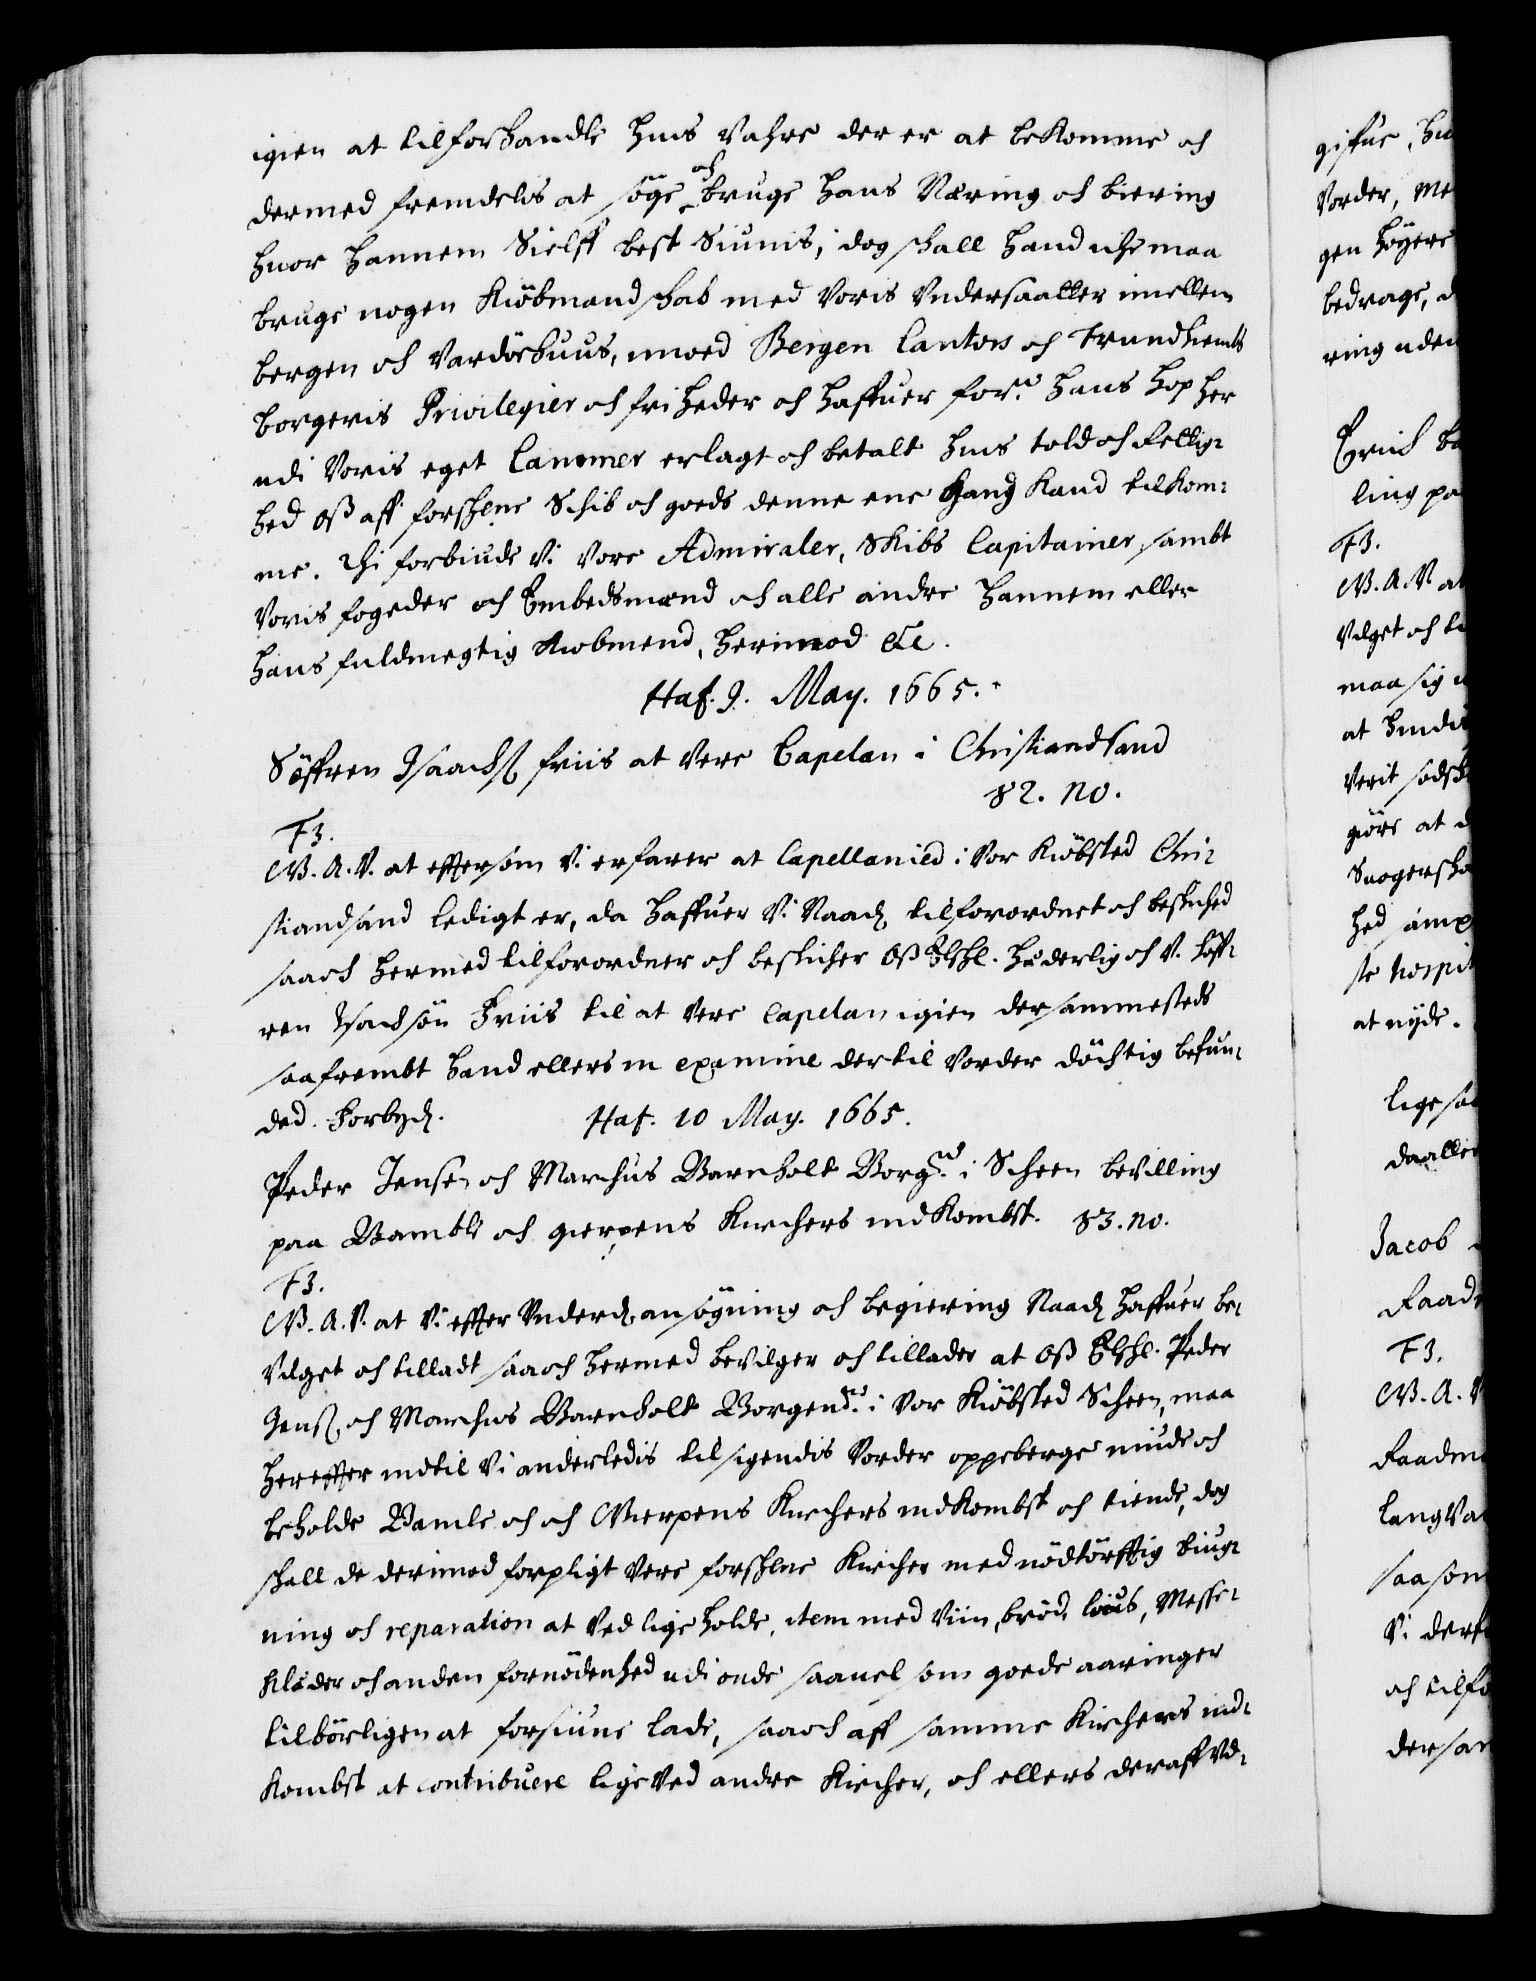 igien at tilforhandle hvis Vahre der er at bekomme och
dermed fremdelis at søge och bruge hans Næring och biering
huor hannem Sielff best Siunis, dog schall hand iche maa
bruge nogen Kiöbmandschab med Voris Vndersaatter imellem
bergen och Vardöehuus, imod Bergen Cantors och Trundhiembs
borgeris Privilegier och friheder och haffuer for:ne hans hop her
udi Voris eget Cammer erlagt och betalt hvis told och Rettig-
hed oß aff forschrefne Schib och goeds denne ene Gang Kand tilkom-
me. Thi forbiude Vi Vore Admiraler, Skibs Capitainer, sambt
Voris fogeder och Embedsmænd och alle andre hannem eller
hans fuldmegtig Kiøbmend, herimod etc.
Haf. 9. May. 1665.
Søffren Isaachß friis at Vere Capelan i Christiandsand
82. no.
F3.
G.A.V. at effter som Vi erfarer at Capellanied i Vor Kiöbsted Chri-
stiandsand ledigt er, da haffuer Vi Naadg. tilforordnet och beskiched
saa och hermed tilforordner och beskicher Oß Elschl. hæderlig och V. Søff-
ren Isachsön Friis til at Vere Capelan igien der sammesteds
saafrembt hand ellers in examine dertil Vorder döchtig befun-
ded. Forbydg. Haf. 10 May. 1665.
Peder Jensen och Marchus Barnholt Borg:re i Scheen bevilling
paa Bamble och gierpens Kirchers indkombst. 83. no.
F3.
G.A.V. at Vi effter Underdg. ansögning och begiering Naadg. haffuer be-
vilget och tilladt saa och hermed bevilger och tillader at Oß Elschl. Peder
Jensß. och Marchus Barnholt Borger:e i Vor Kiöbsted Scheen, maa
hereffter indtil Vi anderledis tilsigendis Vorder oppeberge niude och
beholde Bamle och och Gierpens Kirchers indkombst och tiende, dog
schall de derimod forpligt Vere forschrefne Kircher med nödtörfftig biug-
ning och reparation at Ved lige holde, item med Viin, bröd, lius, Messe-
klæder och anden fornödenhed udi onde saauel som goede aaringer
tilbörligen at forsiune lade, saa och aff samme Kirchers ind-
kombst at contribuere lige Ved andre Kircher, och ellers deraff Vd-
giffue, hu
Vorder, me
gen höyere
bedrage, d
ring uden
Erich ba
ling pa
F3.
G.A.V. at
Vilget och ti
maa sig u
at hvudi
Verit
giøre at d
hed
ste hospit
at nyde.
lige saa
daalle
Jacob
Raadm
F3.
G.A.V
Raadm
lang Va
saa som
Vi derf
och tilfo
der sam